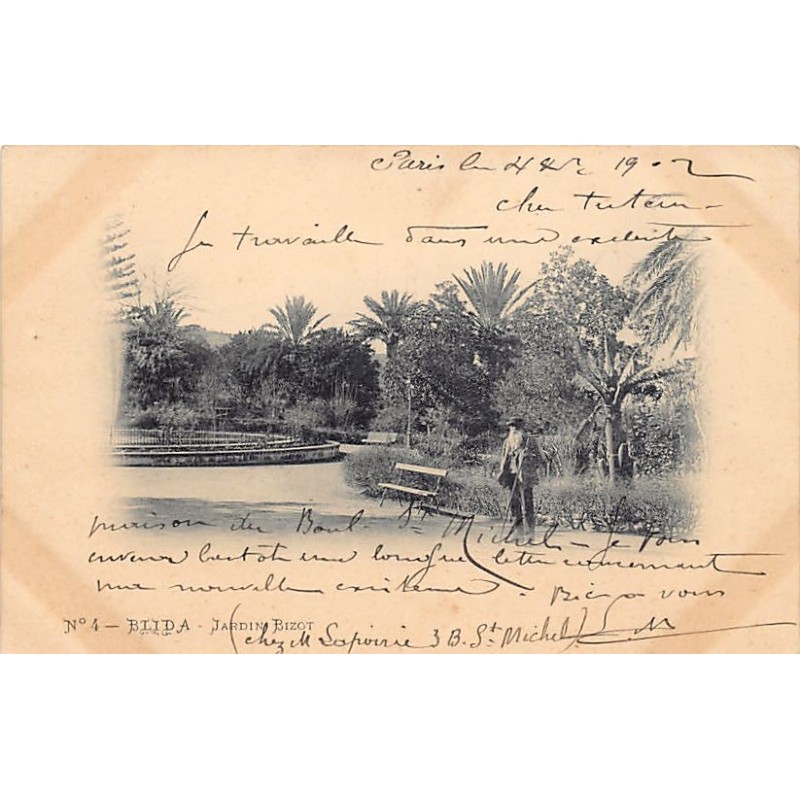 Paris le 4 1902
cher tuteur
Je travaille dans une excellente
maison du Boul. St Michel - Je vous
enverrai bientôt une longue lettre concernant
ma nouvelle existence. Bien à vous
(chez M Lapoirie 3 B. St Michel)
N° 4 — BLIDA - JARDIN BIZOT